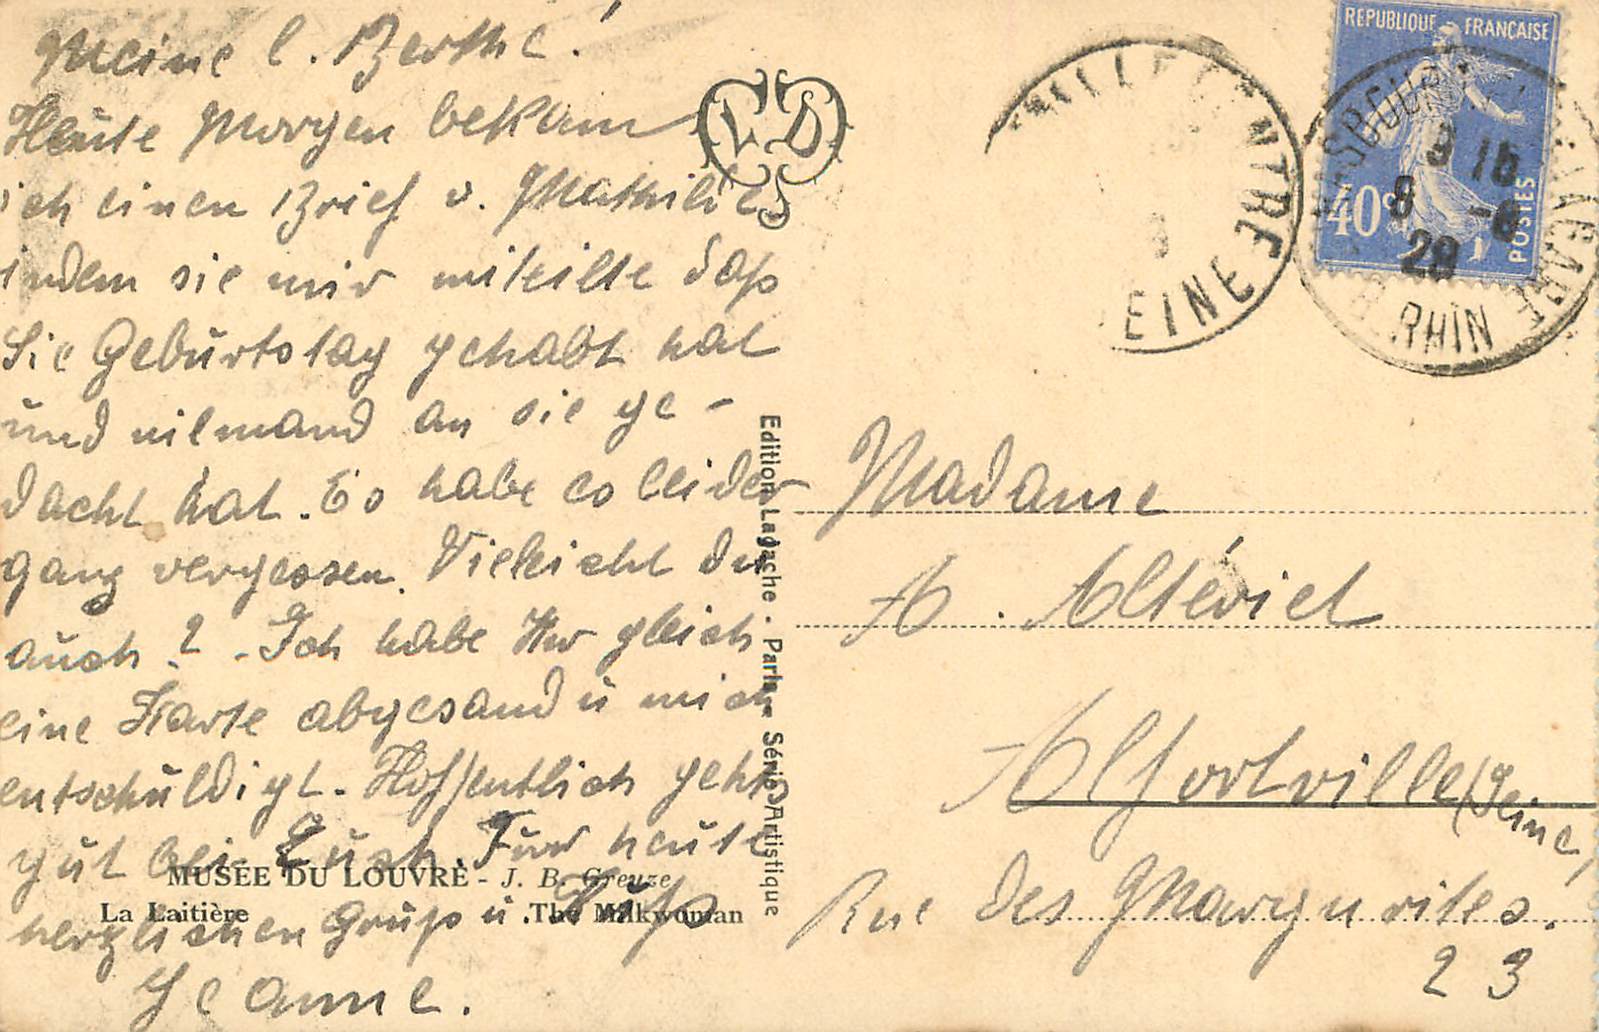 Meine l. Berthe!
Heute Morgen bekam
ich einen Brief v. Mathilde
indem sie mir miteilte daß
Sie Geburtstag gehabt hat
und niemand an sie ge-
dacht hat. Es habe es leider
ganz vergessen. Vieleicht du
auch? - Ich habe Ihr gleich
eine Karte abgesand u mich
entschuldigt. Hoffentlich gehts
gut bei Euch. Für heute
herzlichen Gruß u. Kuß
Jeanne.
MUSÉE DU LOUVRE - J. B. Greuze
La Laitière The Milkwoman
LD
Edition Lagache - Paris - Série Artistique
REPUBLIQUE FRANÇAISE
40c
POSTES
RHIN
9 15
8 -8
29
Madame
A. Altériet
Alfortville (Seine)
Rue des Marguerites.
23